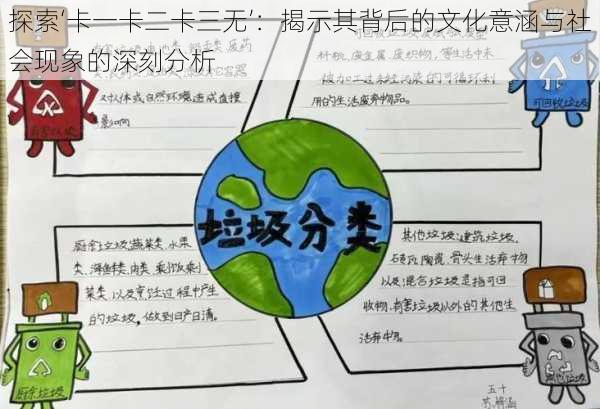 探索‘卡一卡二卡三无’：揭示其背后的文化意涵与社
会现象的深刻分析
对人体或自然环境造成直接
影响的
有害垃圾
用的生活废弃物品。
可回收垃圾
垃圾分类
厨余垃圾蔬菜类、水果
类、海鲜类、肉类、剩饭剩
菜类、以及烹饪过程中产生
的垃圾，做到日产日清。
厨余垃圾
其他垃圾：建筑垃圾、
砖瓦陶瓷、骨头生活弃物
以及混合垃圾是指可回
收物、有害垃圾以外的其他生
活弃物。
其他垃圾
五十